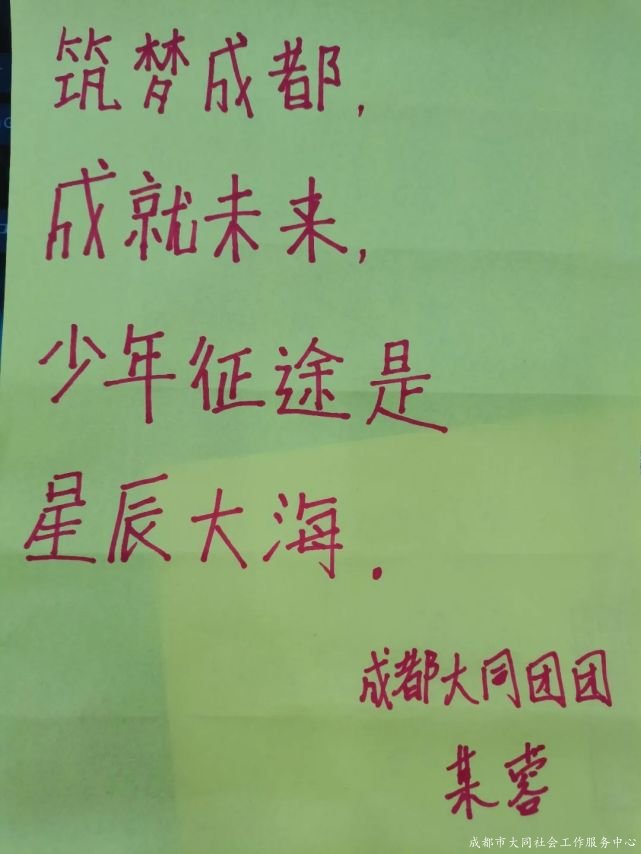 筑梦成都,
成就未来,
少年征途是
星辰大海.
成都大同团团
某蓉
成都市大同社会工作服务中心